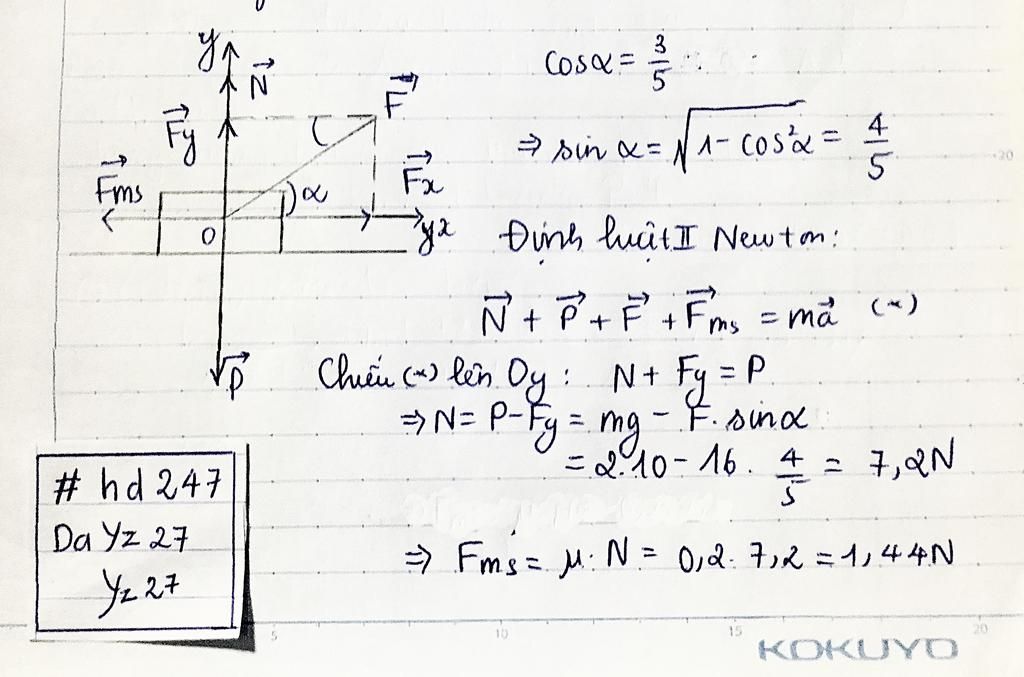 y
N
F
Fy
Fms
Fx
α
O
yx
P
cosα = 3/5
⇒ sin α = √1 - cos²α = 4/5
Định luật II Newton:
N + P + F + Fms = ma (*)
Chiếu (*) lên Oy: N + Fy = P
⇒ N = P - Fy = mg - F. sinα
= 2.10 - 16. 4/5 = 7,2N
⇒ Fms = μ. N = 0,2. 7,2 = 1,44N
# hd 247
Da Yz 27
Yz 27
5 10 15 20
20
KOKUYO